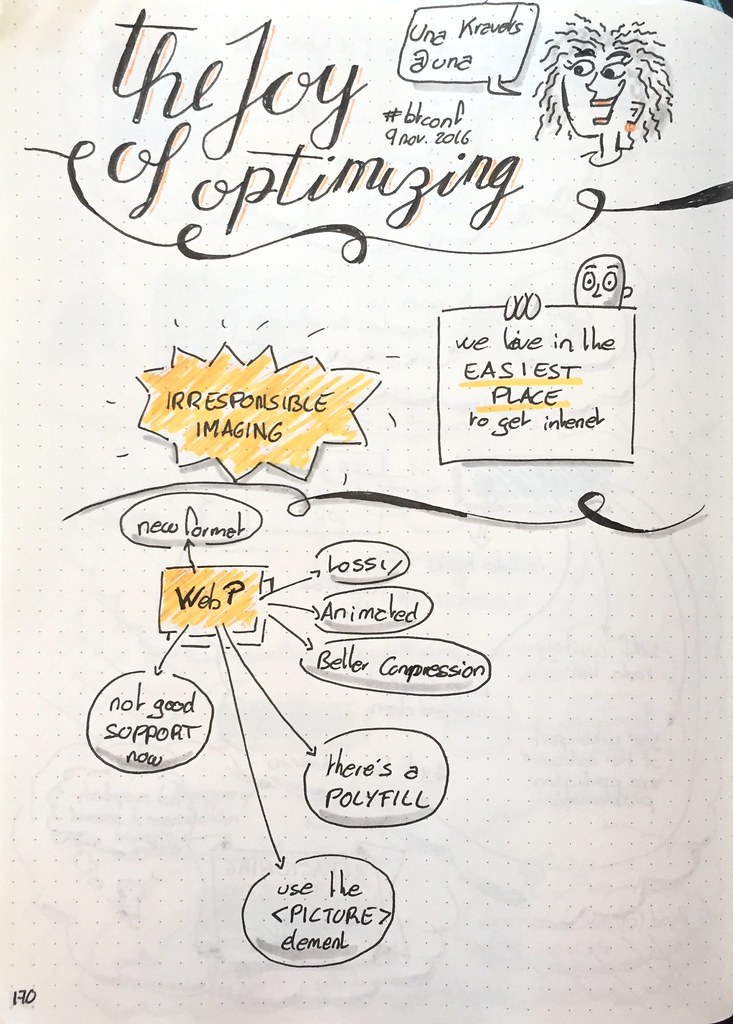 the Joy
of optimizing
Una Kravets
@una
#btconf
9 nov. 2016
we live in the
EASIEST
PLACE
to get internet
IRRESPONSIBLE
IMAGING
new format
WebP
Lossy
Animated
Better Compression
not good
SUPPORT
now
there's a
POLYFILL
use the
<PICTURE>
element
170